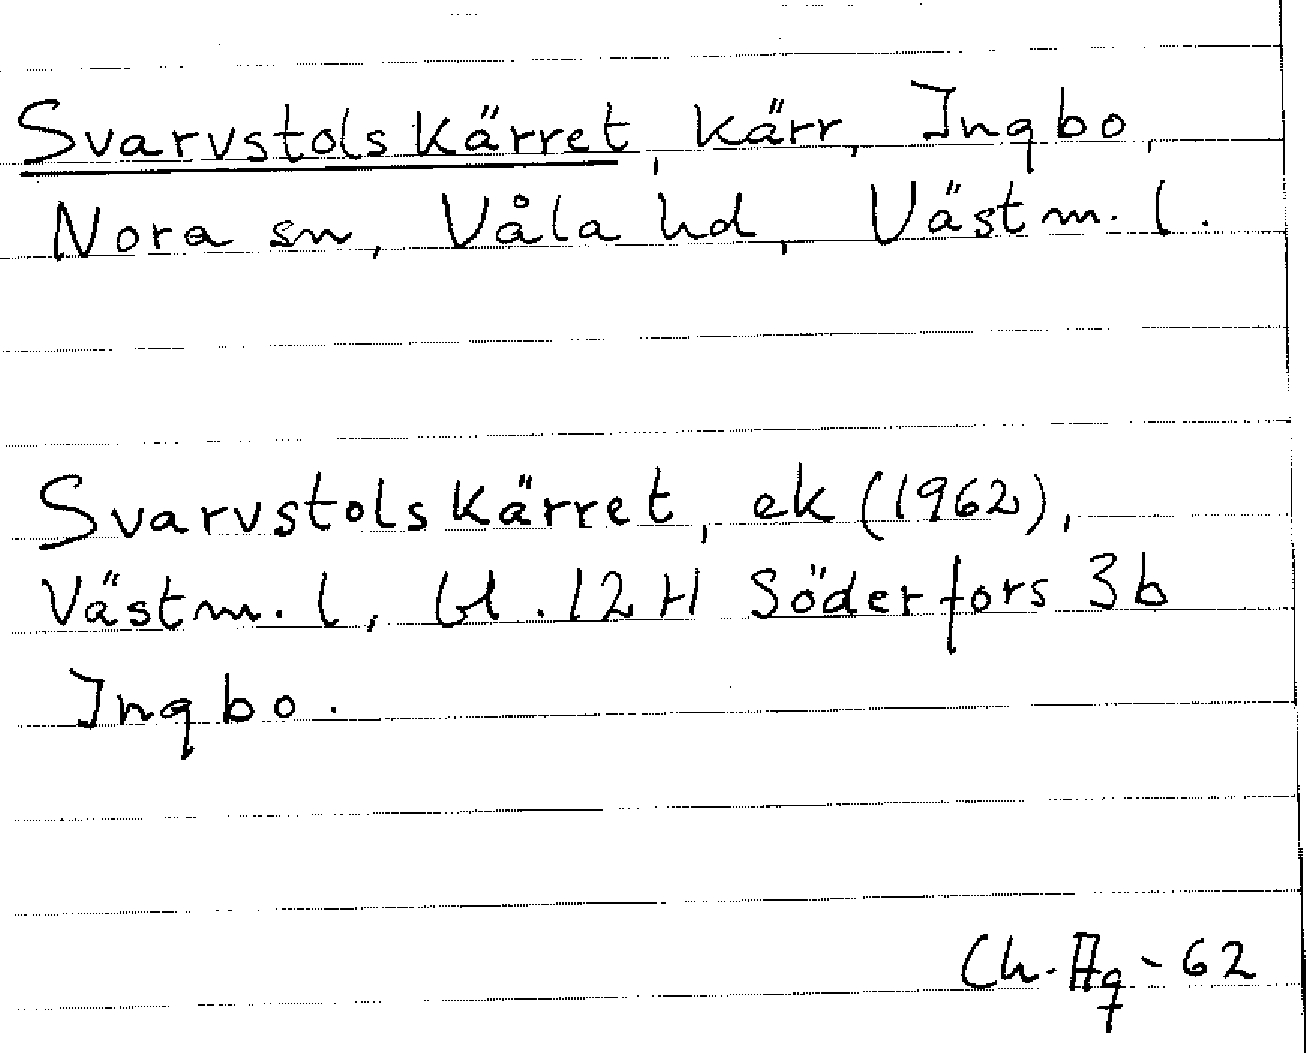 Svarvstolskärret, kärr, Ingbo,
Nora sn, Våla hd, Västm. l.
Svarvstolskärret, ek (1962),
Västm. l, bl. 12 H Söderfors 3b
Ingbo.
Ch. Hg - 62